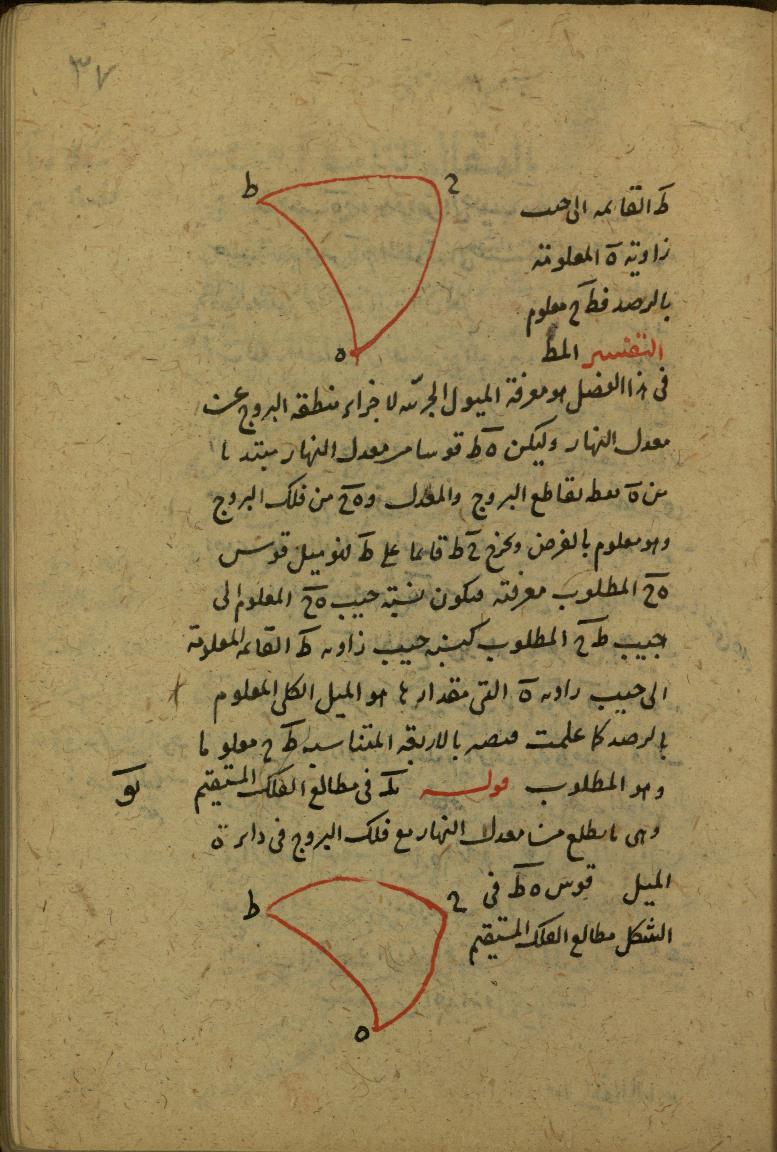 ٣٧
ط ح
ط القائمه الى جيب
زاوية ه المعلومة
بالرصد فط ح معلوم
ه
التفسير المط
فى هذا الفصل هو معرفة الميول الجزئيه لاجزاء منطقة البروج عن
معدل النهار وليكن ه ط قوسا من معدل النهار مبتدئا
من ه نقطة تقاطع البروج والمعدل و ه ح من فلك البروج
وهو معلوم بالفرض ونخرج ح ط قائما على ط فهو ميل قوس
ه ح المطلوب معرفته فيكون نسبة جيب ه ح المعلوم الى
جيب ط ح المطلوب كنسبة جيب زاويه ط القائمه المعلومة
الى جيب زاويه ه التى مقدارها هو الميل الكلى المعلوم
بالرصد كما علمت فيصير بالاربعة المتناسبه ط ح معلوما
وهو المطلوب قوله فى مطالع الفلك المستقيم
وهى ما يطلع من معدل النهار مع فلك البروج فى دائرة
الميل قوس ه ط فى
الشكل مطالع الفلك المستقيم
ط ح
ه